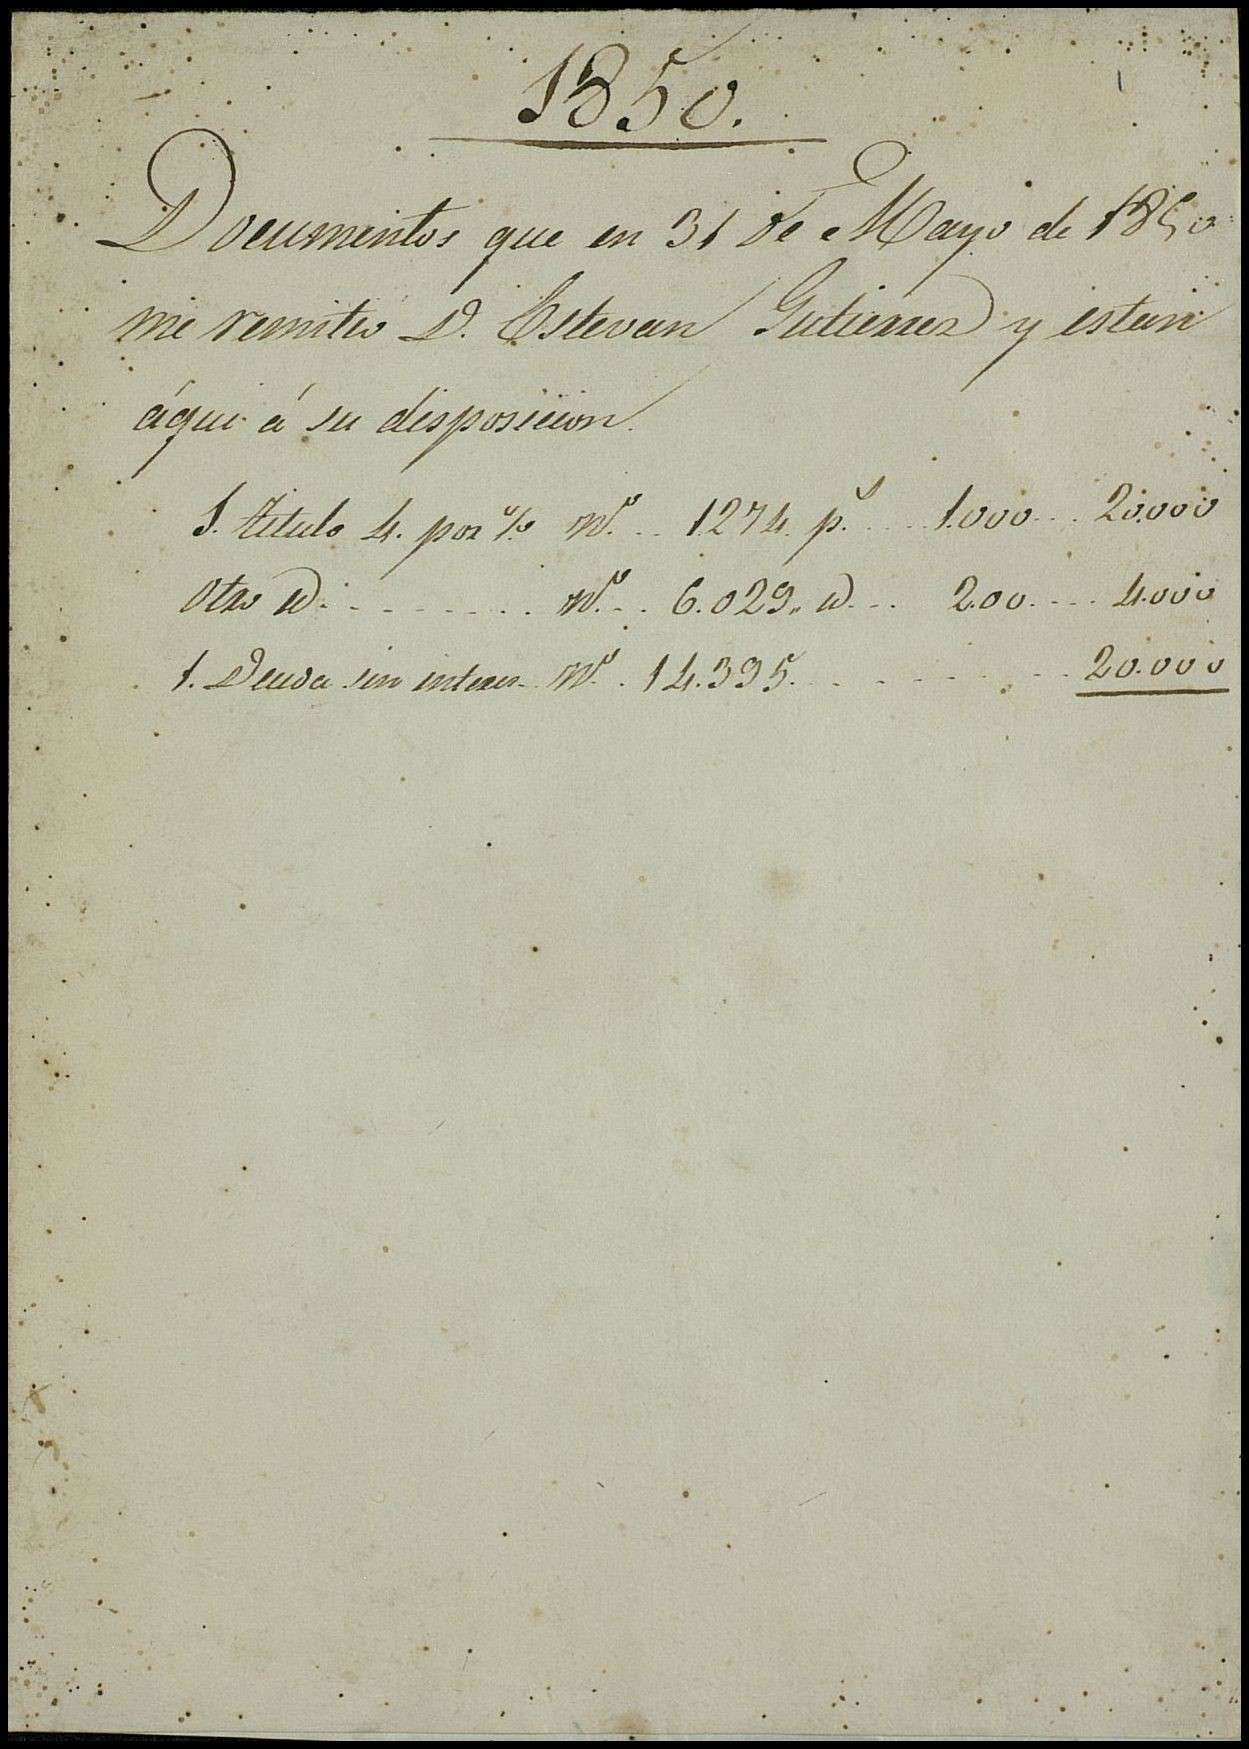 1850.
Documentos que en 31 de Mayo de 1850
me remitio D. Estevan Gutierrez y estan
áqui á su disposicion.
1. titulo 4. por % Nº. .. 1274. pˢ. ... 1.000 ... 20.000
Otro id. ........ Nº. .. 6.029,, id. .. 200. ... 4.000
1. Deuda sin interes. Nº. . 14.395. ........ 20.000